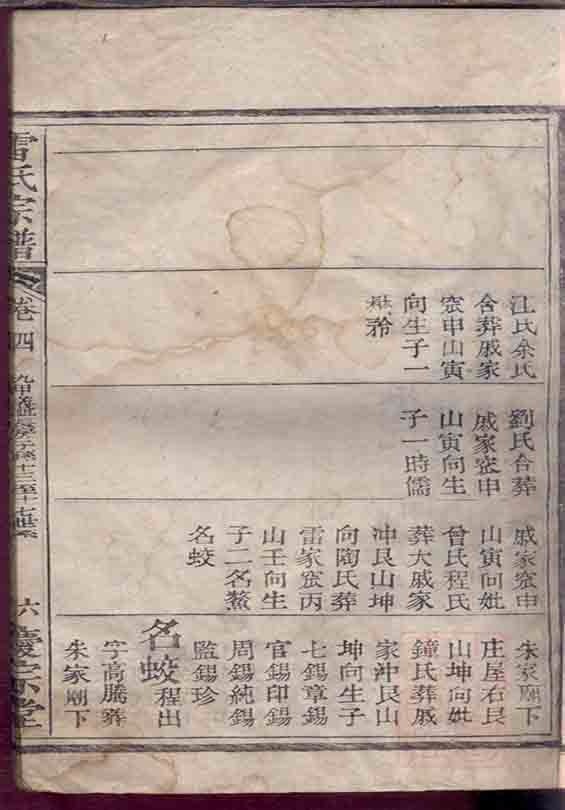 江氏余氏
合葬戚家
窊申山寅
向生子一
劉氏合葬
戚家窊申
山寅向生
子一時儒
戚家窊申
山寅向妣
曾氏程氏
葬大戚家
冲艮山坤
向陶氏葬
雷家窊丙
山壬向生
子二名鰲
名蛟
朱家廟下
庄屋右艮
山坤向妣
鐘氏葬戚
家冲艮山
坤向生子
七錫章錫
官錫印錫
周錫純錫
監錫珍
名蛟程出
字高騰葬
朱家廟下
雷氏宗譜
卷四
六